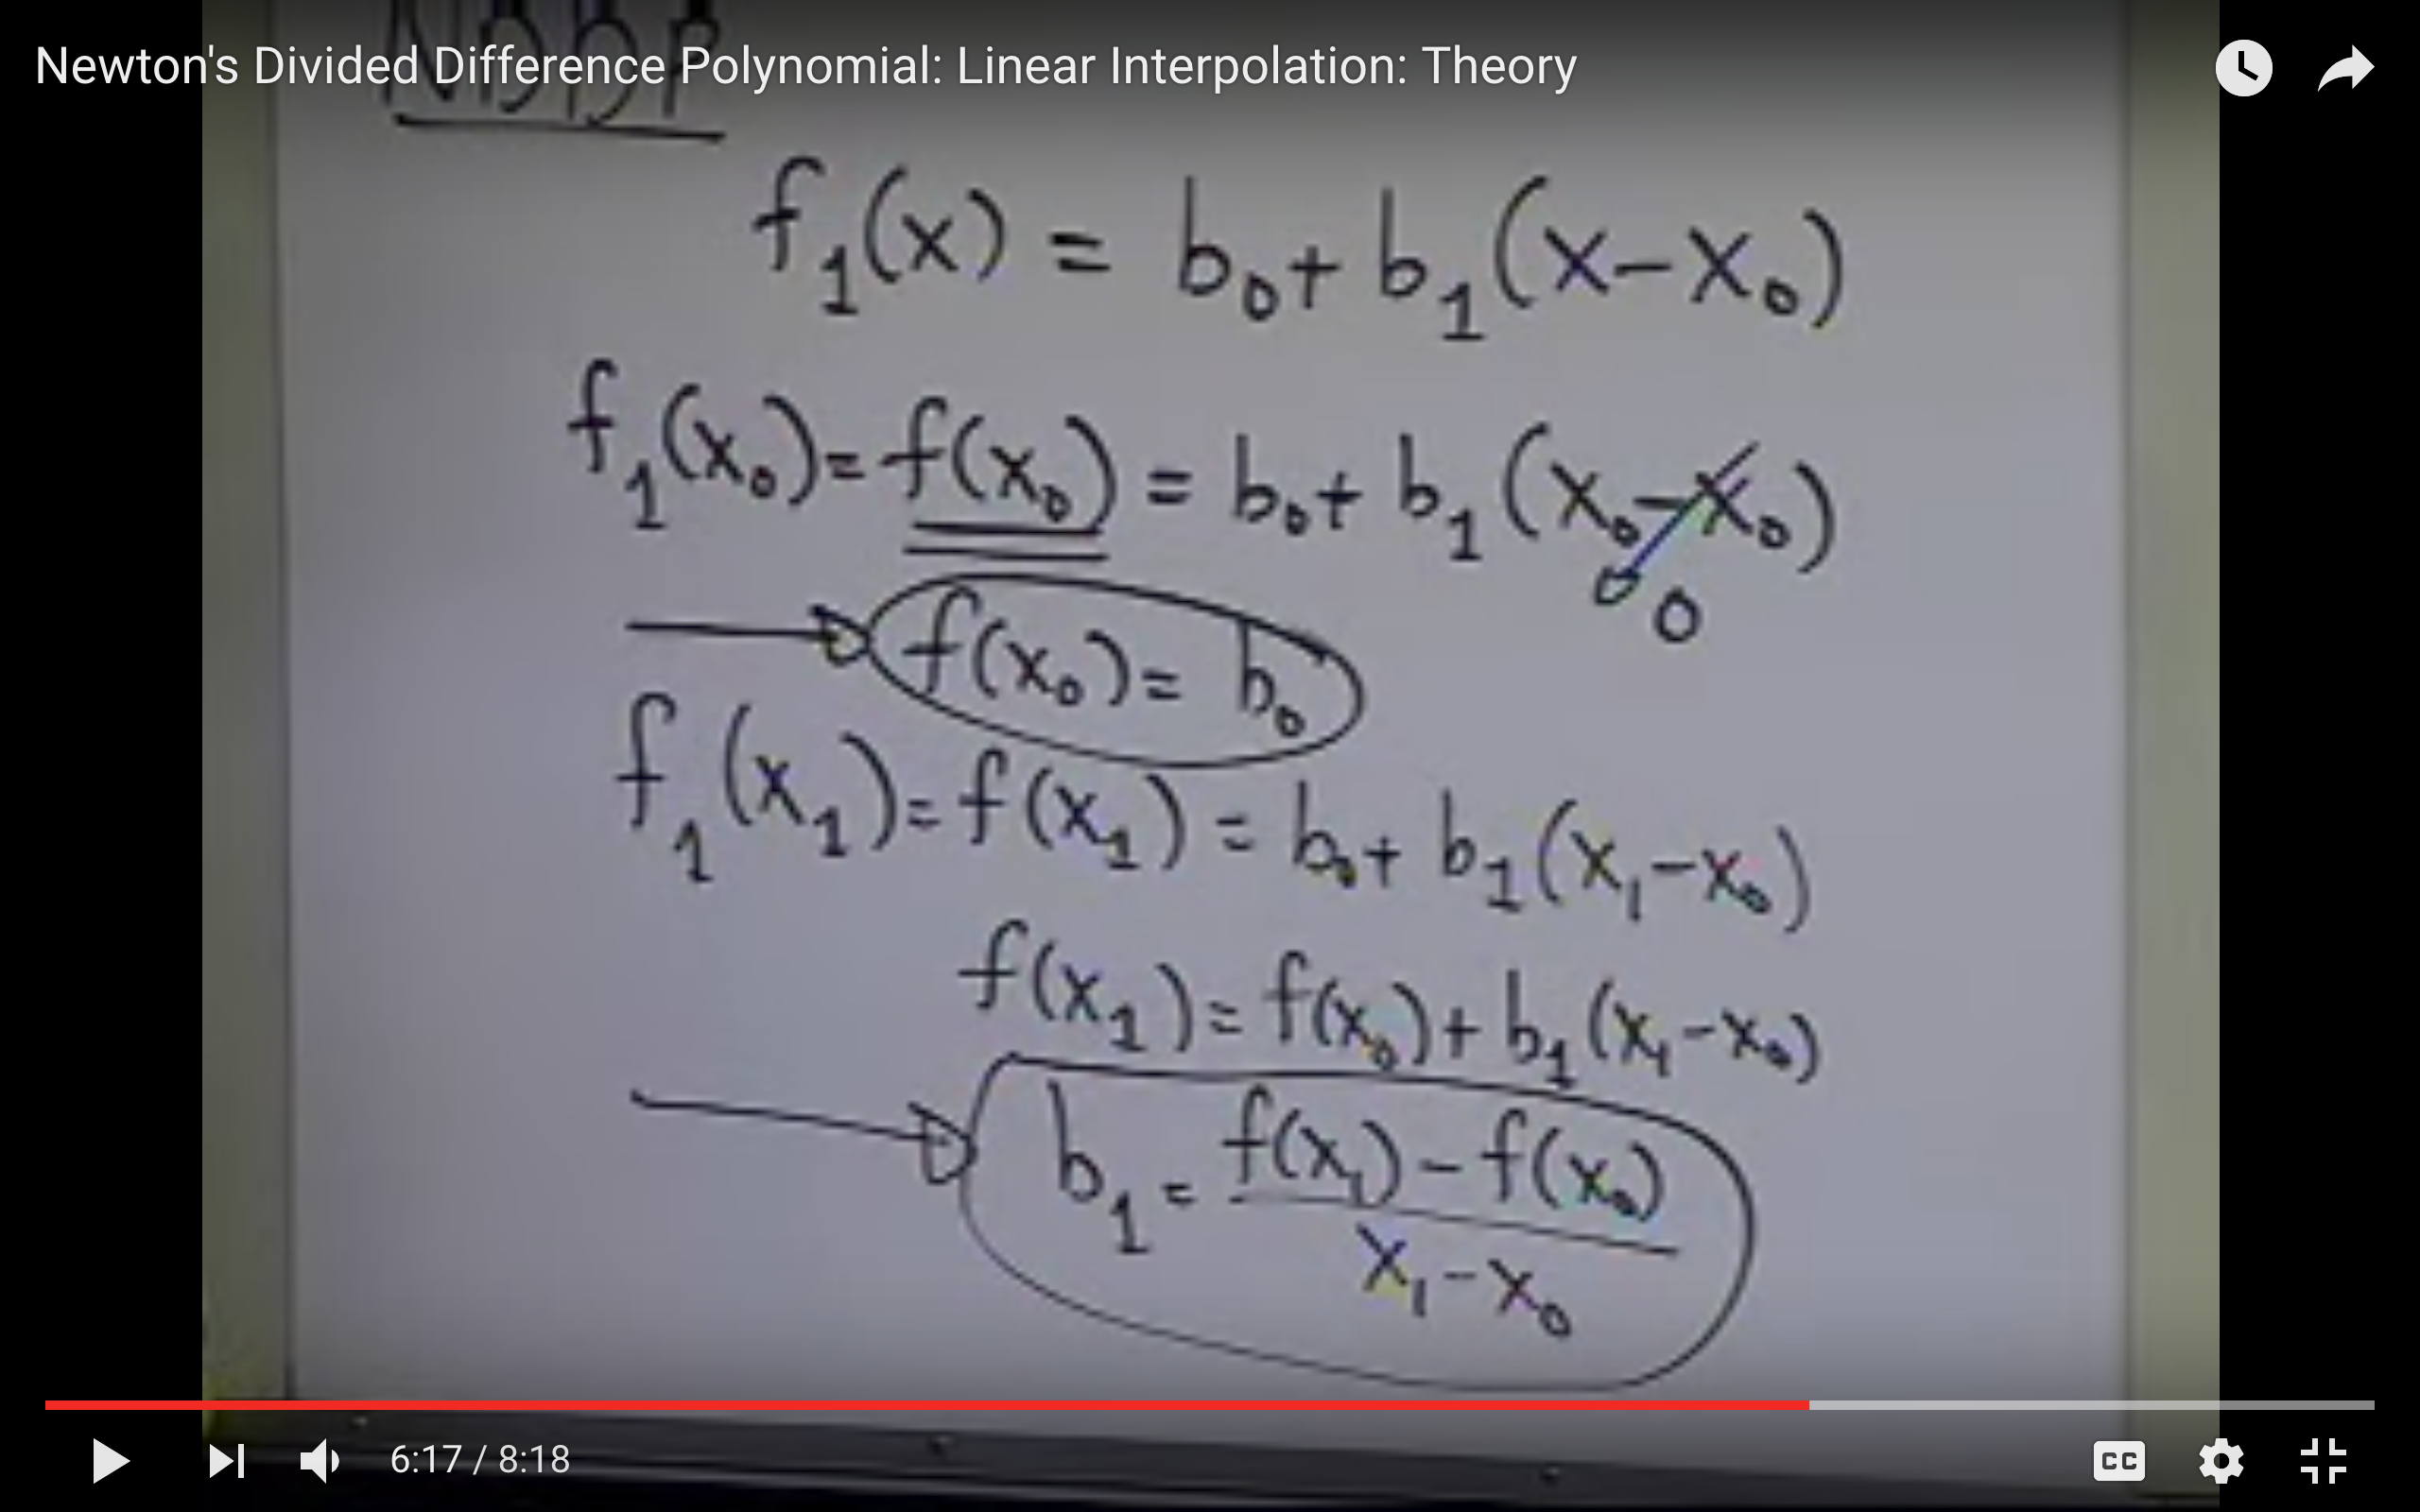 Newton's Divided Difference Polynomial: Linear Interpolation: Theory
NDDP
f₁(x) = b₀+ b₁(x-x₀)
f₁(x₀)= f(x₀) = b₀+ b₁(x₀-x₀)
0
f(x₀)= b₀
f₁(x₁)= f(x₁) = b₀+ b₁(x₁-x₀)
f(x₁)= f(x₀)+ b₁(x₁-x₀)
b₁ = f(x₁) - f(x₀)
x₁-x₀
6:17 / 8:18
CC